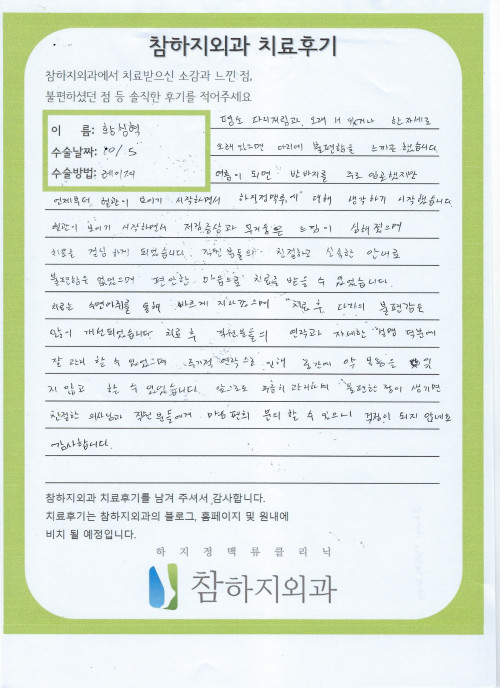 참하지외과 치료후기
참하지외과에서 치료받으신 소감과 느낀 점,
불편하셨던 점 등 솔직한 후기를 적어주세요
이 름: 황상혁
수술날짜: 10/5
수술방법: 레이저
평소 다리저림과, 오래 서 있거나 한자세로
오래 있으면 다리에 불편함을 느끼곤 했습니다.
여름이 되면 반바지를 주로 입곤했지만
언제부턴 혈관이 보이기 시작하면서 하지정맥류에 대해 생각하기 시작했습니다.
혈관이 보이기 시작하면서 저림증상과 무거움은 느낌이 심해졌으며
치료를 결심 하게 되었습니다. 직원분들의 친절하고 신속한 안내로
불편함은 없었으며 편안한 마음으로 치료를 받을 수 있었습니다.
치료는 수면마취를 통해 빠르게 지나갔으며 치료 후 다리의 불편감은
많이 개선되었습니다. 치료 후 직원분들의 연락과 자세한 설명 덕분에
잘 관리 할 수 있었으며 주기적 연락으로 인해 중간에 약 복용을 잊
지 않고 할 수 있었습니다. 앞으로도 꾸준히 관리하며 불편한 점이 생기면
친절한 의사님과 직원분들에게 마음 편히 문의 할 수 있으니 걱정이 되지 않네요
감사합니다.
참하지외과 치료후기를 남겨 주셔서 감사합니다.
치료후기는 참하지외과의 블로그, 홈페이지 및 원내에
비치 될 예정입니다.
하지정맥류클리닉
참하지외과